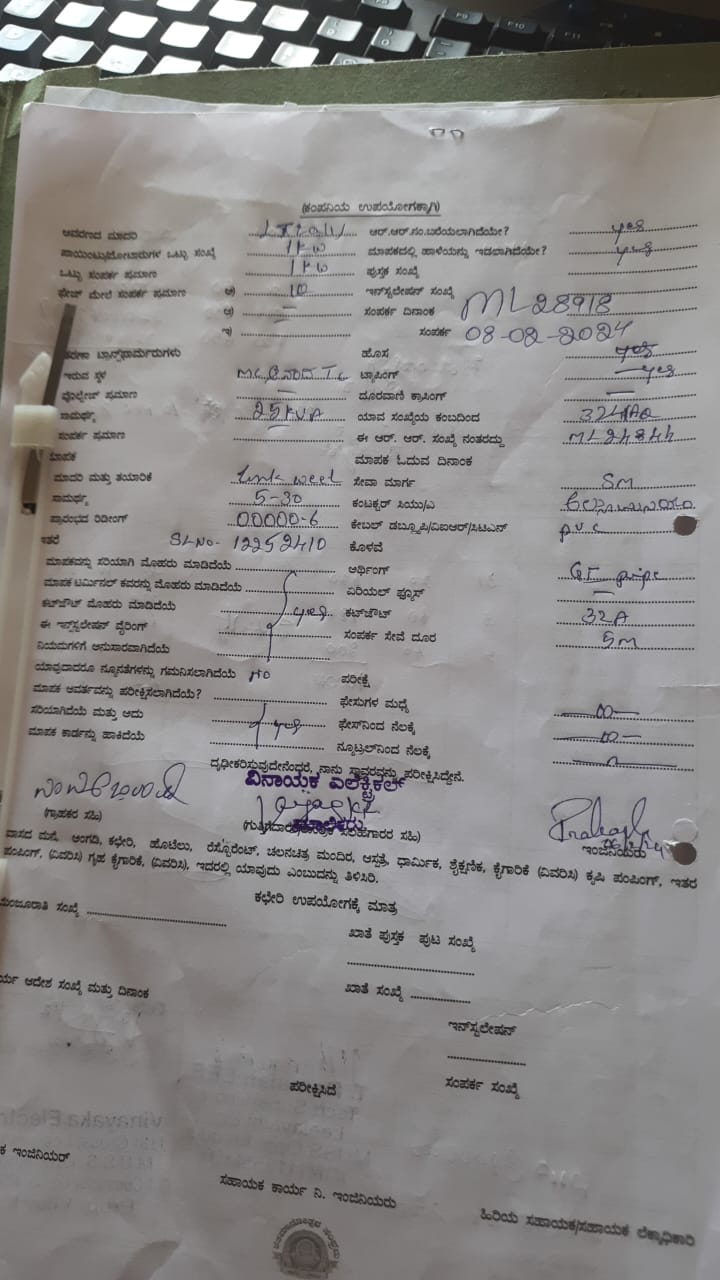 (ಕಂಪನಿಯ ಉಪಯೋಗಕ್ಕಾಗಿ)
ಆವರಣದ ಮಾದರಿ ಆರ್.ಆರ್.ನಂ.ಬರೆಯಲಾಗಿದೆಯೇ? yes
ಪಾಯಿಂಟ್ಸು/ಮೋಟಾರುಗಳ ಒಟ್ಟು ಸಂಖ್ಯೆ 1kw ಮಾಪಕದಲ್ಲಿ ಹಾಳೆಯನ್ನು ಇಡಲಾಗಿದೆಯೇ? yes
ಒಟ್ಟು ಸಂಪರ್ಕ ಪ್ರಮಾಣ 1kw ಪುಸ್ತಕ ಸಂಖ್ಯೆ
ಫೇಜ್ ಮೇಲೆ ಸಂಪರ್ಕ ಪ್ರಮಾಣ ಅ) 10 ಇನ್‌ಸ್ಟಲೇಷನ್ ಸಂಖ್ಯೆ ML28918
ಆ) — ಸಂಪರ್ಕ ದಿನಾಂಕ
ಇ) ಸಂಪರ್ಕ 08-02-2024
ಟ್ರಾನ್ಸ್‌ಫಾರ್ಮರುಗಳು ಹೊಸ yes
ಇರುವ ಸ್ಥಳ ಟ್ಯಾಪಿಂಗ್ —yes
ವೋಲ್ಟೇಜ್ ಪ್ರಮಾಣ — ದೂರವಾಣಿ ಕ್ರಾಸಿಂಗ್ —
ಸಾಮರ್ಥ್ಯ 25KVA ಯಾವ ಸಂಖ್ಯೆಯ ಕಂಬದಿಂದ
ಸಂಪರ್ಕ ಪ್ರಮಾಣ ಈ ಆರ್. ಆರ್. ಸಂಖ್ಯೆ ನಂತರದ್ದು ML24844
ಮಾಪಕ ಮಾಪಕ ಓದುವ ದಿನಾಂಕ
ಮಾದರಿ ಮತ್ತು ತಯಾರಿಕೆ ಸೇವಾ ಮಾರ್ಗ SM
ಸಾಮರ್ಥ್ಯ 5-30 ಕಂಟಕ್ಟರ್ ಸಿಯು/ಎ
ಪ್ರಾರಂಭದ ರಿಡೀಂಗ್ 00000-6 ಕೇಬಲ್ ಡಬ್ಲೂಪಿ/ವಿಐಆರ್/ಸಿಟಿಎನ್ pvc
ಇತರೆ SLNO- 12252410 ಕೊಳವೆ
ಮಾಪಕವನ್ನು ಸರಿಯಾಗಿ ಮೊಹರು ಮಾಡಿದೆಯೆ ಆರ್ಥಿಂಗ್ GI pipe
ಮಾಪಕ ಟರ್ಮಿನಲ್ ಕವರನ್ನು ಮೊಹರು ಮಾಡಿದೆಯೆ ಎರಿಯಲ್ ಫ್ಯೂಸ್ —
ಕಟ್‌ಔಟ್ ಮೊಹರು ಮಾಡಿದೆಯೆ yes ಕಟ್‌ಔಟ್ 32A
ಈ ಇನ್‌ಸ್ಟಲೇಷನ್ ವೈರಿಂಗ್ ಸಂಪರ್ಕ ಸೇವೆ ದೂರ 5M
ನಿಯಮಗಳಿಗೆ ಅನುಸಾರವಾಗಿದೆಯೆ
ಯಾವುದಾದರೂ ನ್ಯೂನತೆಗಳನ್ನು ಗಮನಿಸಲಾಗಿದೆಯೆ NO ಪರೀಕ್ಷೆ
ಮಾಪಕ ಆವರ್ತವನ್ನು ಪರೀಕ್ಷಿಸಲಾಗಿದೆಯೆ? ಫೇಸುಗಳ ಮಧ್ಯೆ
ಸರಿಯಾಗಿದೆಯೆ ಮತ್ತು ಅದು yes ಫೇಸ್‌ನಿಂದ ನೆಲಕ್ಕೆ
ಮಾಪಕ ಕಾರ್ಡನ್ನು ಹಾಕಿದೆಯೆ ನ್ಯೂಟ್ರಲ್‌ನಿಂದ ನೆಲಕ್ಕೆ
ದೃಢೀಕರಿಸುವುದೇನೆಂದರೆ, ನಾನು ಸ್ಥಾವರವನ್ನು ಪರೀಕ್ಷಿಸಿದ್ದೇನೆ.
ವಿನಾಯಕ ಎಲೆಕ್ಟ್ರಿಕಲ್
ಮಾಲೀಕರು
(ಗ್ರಾಹಕರ ಸಹಿ) ಇಂಜಿನಿಯರು
ವಾಸದ ಮನೆ, ಅಂಗಡಿ, ಕಛೇರಿ, ಹೊಟೆಲು, ರೆಸ್ಟೊರೆಂಟ್, ಚಲನಚಿತ್ರ ಮಂದಿರ, ಆಸ್ಪತ್ರೆ, ಧಾರ್ಮಿಕ, ಶೈಕ್ಷಣಿಕ, ಕೈಗಾರಿಕೆ (ವಿವರಿಸಿ) ಕೃಷಿ ಪಂಪಿಂಗ್, ಇತರ
ಪಂಪಿಂಗ್, (ವಿವರಿಸಿ) ಗೃಹ ಕೈಗಾರಿಕೆ, (ವಿವರಿಸಿ), ಇದರಲ್ಲಿ ಯಾವುದು ಎಂಬುದನ್ನು ತಿಳಿಸಿರಿ.
ಕಛೇರಿ ಉಪಯೋಗಕ್ಕೆ ಮಾತ್ರ
ಮಂಜೂರಾತಿ ಸಂಖ್ಯೆ ಖಾತೆ ಪುಸ್ತಕ ಪುಟ ಸಂಖ್ಯೆ
ಆದೇಶ ಸಂಖ್ಯೆ ಮತ್ತು ದಿನಾಂಕ ಖಾತೆ ಸಂಖ್ಯೆ
ಇನ್‌ಸ್ಟಲೇಷನ್
ಪರೀಕ್ಷಿಸಿದೆ ಸಂಪರ್ಕ ಸಂಖ್ಯೆ
ಇಂಜಿನಿಯರ್
ಸಹಾಯಕ ಕಾರ್ಯ ನಿ. ಇಂಜಿನಿಯರು
ಹಿರಿಯ ಸಹಾಯಕ/ಸಹಾಯಕ ಲೆಕ್ಕಾಧಿಕಾರಿ